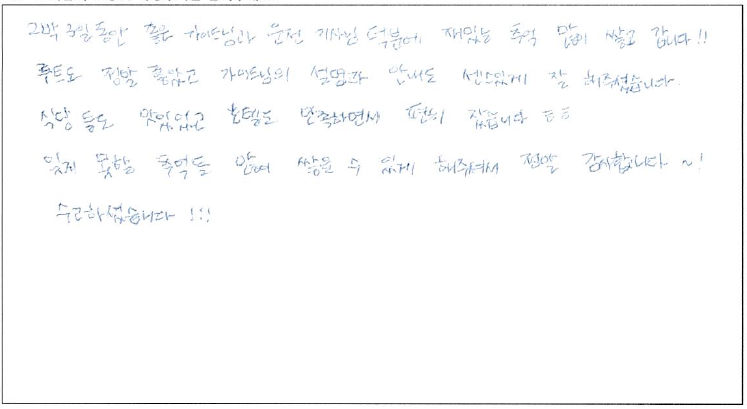 2박 3일 동안 좋은 가이드님과 운전 기사님 덕분에 재밌는 추억 많이 쌓고 갑니다!!
루트도 정말 좋았고 가이드님의 설명과 안내도 센스있게 잘 해주셨습니다.
식당 들도 맛있었고 호텔도 만족하면서 편히 잤습니다 ㅎㅎ
잊지 못할 추억들 많이 쌓을 수 있게 해주셔서 정말 감사합니다 ~!
수고하셨습니다 !!!